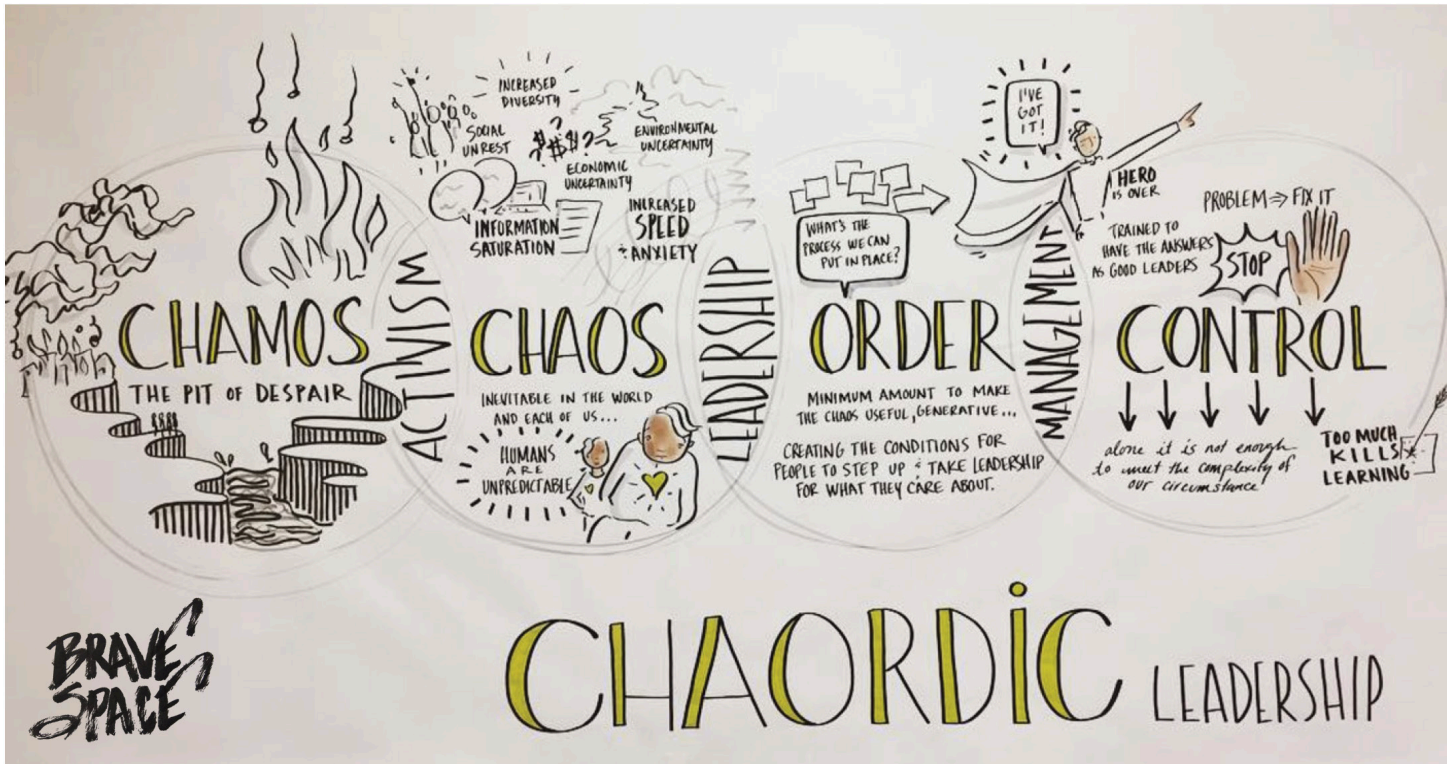 CHAMOS
THE PIT OF DESPAIR
ACTIVISM
INCREASED
DIVERSITY
SOCIAL
UNREST
$#$!?
ECONOMIC
UNCERTAINTY
ENVIRONMENTAL
UNCERTAINTY
INFORMATION
SATURATION
INCREASED
SPEED
+ ANXIETY
CHAOS
INEVITABLE IN THE WORLD
AND EACH OF US...
HUMANS
ARE
UNPREDICTABLE
LEADERSHIP
WHAT'S THE
PROCESS WE CAN
PUT IN PLACE?
ORDER
MINIMUM AMOUNT TO MAKE
THE CHAOS USEFUL, GENERATIVE...
CREATING THE CONDITIONS FOR
PEOPLE TO STEP UP + TAKE LEADERSHIP
FOR WHAT THEY CARE ABOUT.
MANAGEMENT
I'VE
GOT
IT!
HERO
IS OVER
TRAINED TO
HAVE THE ANSWERS
AS GOOD LEADERS
PROBLEM ⇒ FIX IT
STOP
CONTROL
alone it is not enough
to meet the complexity of
our circumstance
TOO MUCH
KILLS
LEARNING
BRAVE
SPACE
CHAORDiC LEADERSHIP